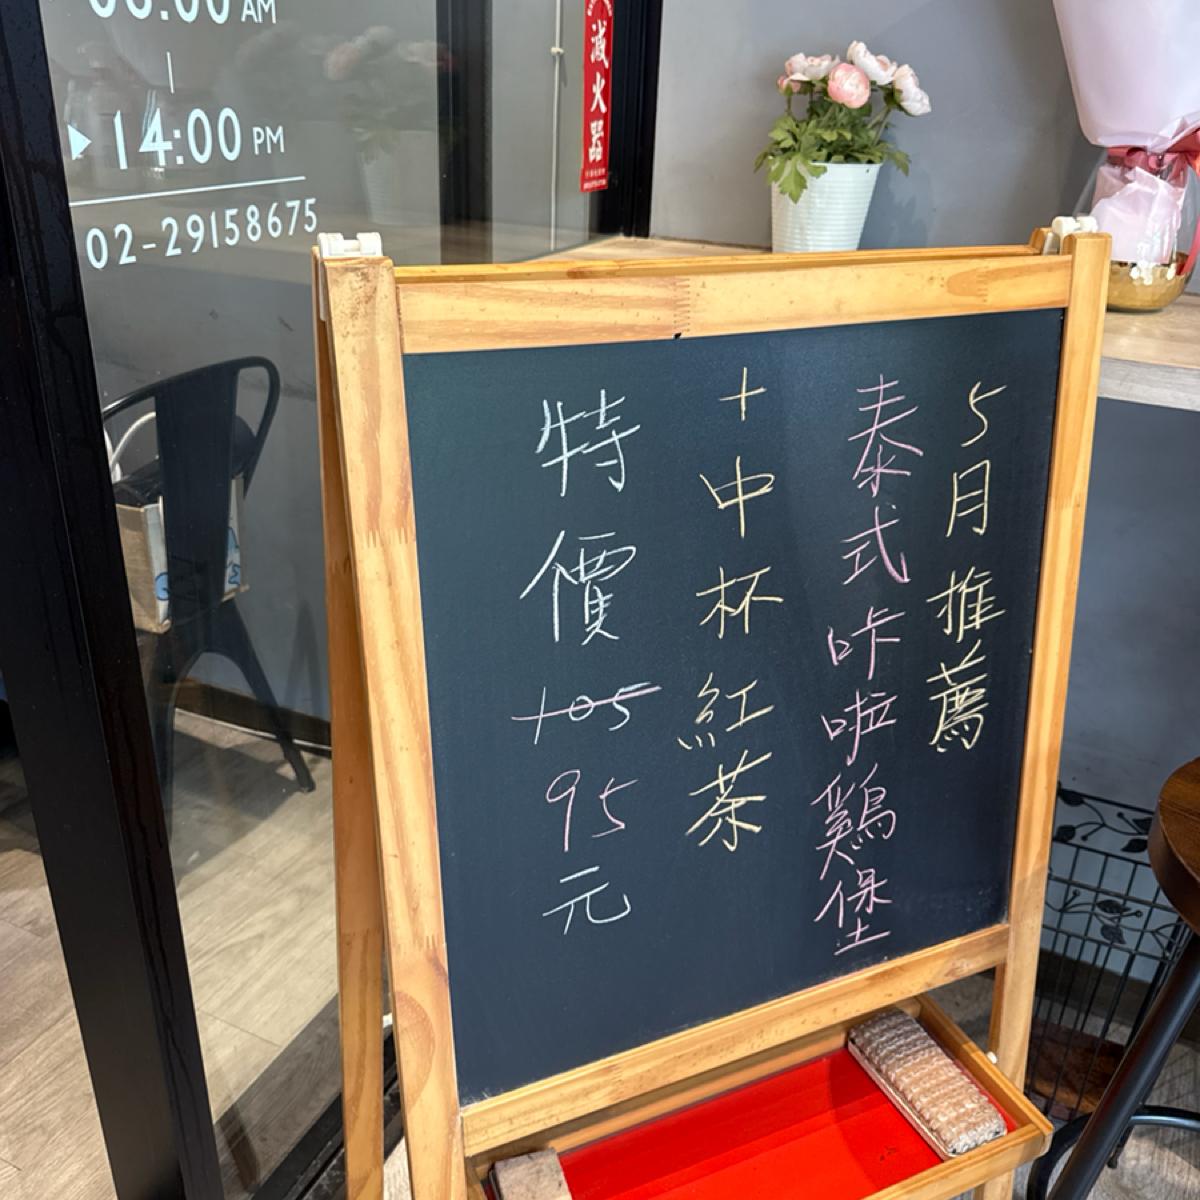 AM
14:00 PM
02-29158675
滅火器
5月推薦
泰式咔啦鷄堡
+中杯紅茶
特價105 95元